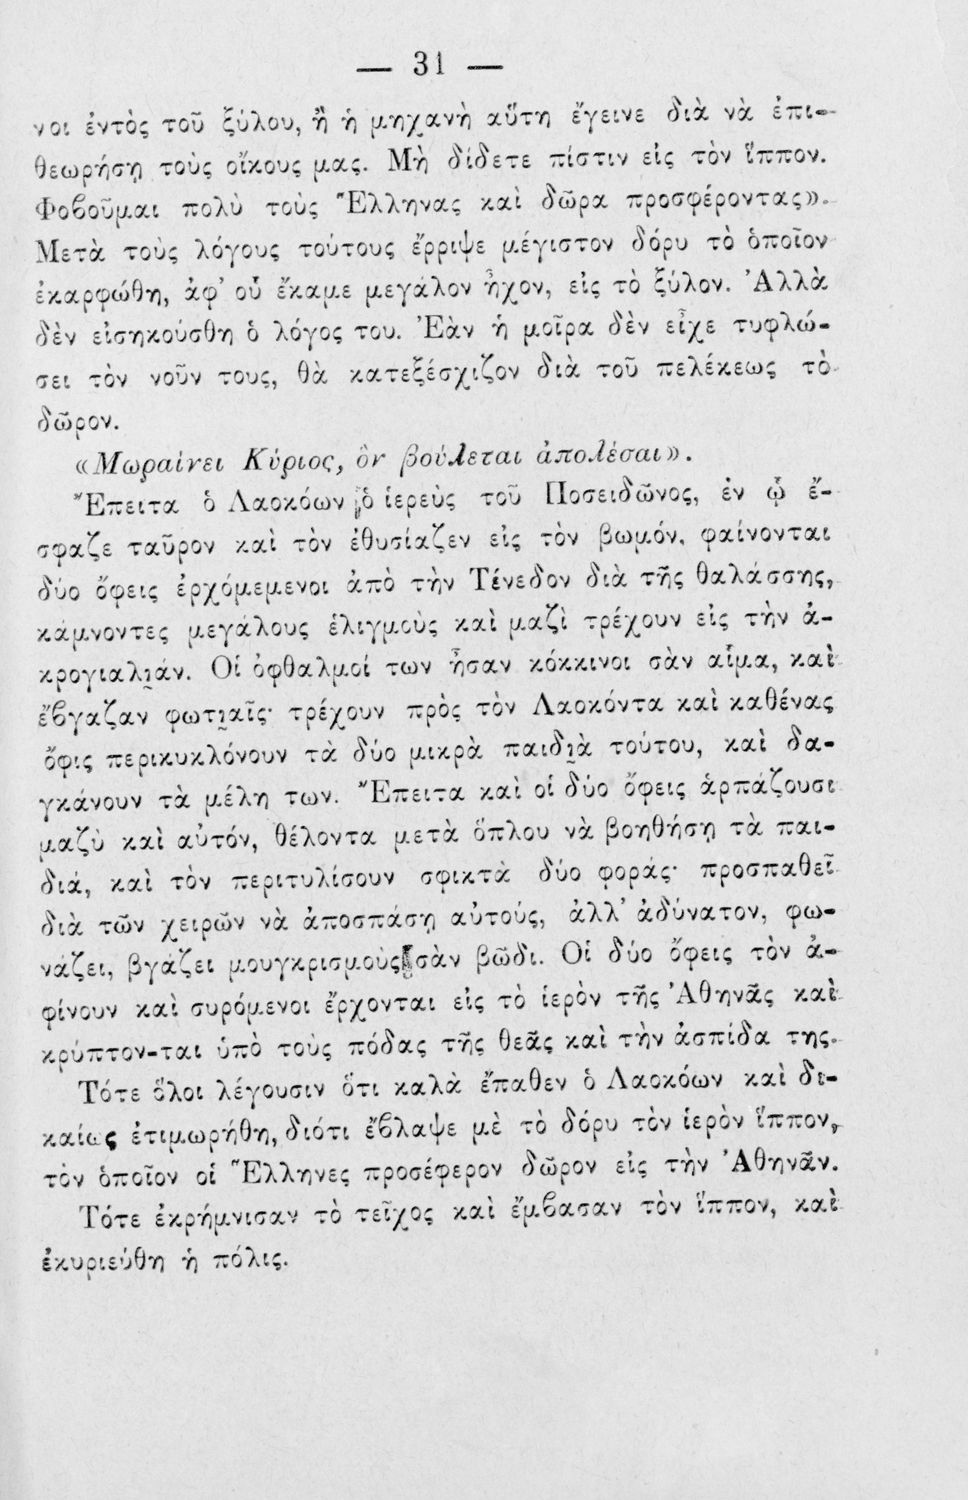 — 31 —
νοι ἐντὸς τοῦ ξύλου, ἢ ἡ μηχανὴ αὕτη ἔγεινε διὰ νὰ ἐπι-
θεωρήσῃ τοὺς οἴκους μας. Μὴ δίδετε πίστιν εἰς τὸν ἵππον.
Φοβοῦμαι πολὺ τοὺς Ἕλληνας καὶ δῶρα προσφέροντας».
Μετὰ τοὺς λόγους τούτους ἔρριψε μέγιστον δόρυ τὸ ὁποῖον
ἐκαρφώθη, ἀφ' οὗ ἔκαμε μεγάλον ἦχον, εἰς τὸ ξύλον. Ἀλλὰ
δὲν εἰσηκούσθη ὁ λόγος του. Ἐὰν ἡ μοῖρα δὲν εἶχε τυφλώ-
σει τὸν νοῦν τους, θὰ κατεξέσχιζον διὰ τοῦ πελέκεως τὸ
δῶρον.
«Μωραίνει Κύριος, ὃν βούλεται ἀπολέσαι».
Ἔπειτα ὁ Λαοκόων ὁ ἱερεὺς τοῦ Ποσειδῶνος, ἐν ᾧ ἔ-
σφαζε ταῦρον καὶ τὸν ἐθυσίαζεν εἰς τὸν βωμόν, φαίνονται
δύο ὄφεις ἐρχόμεμενοι ἀπὸ τὴν Τένεδον διὰ τῆς θαλάσσης,
κάμνοντες μεγάλους ἑλιγμοὺς καὶ μαζὶ τρέχουν εἰς τὴν ἀ-
κρογιαλιάν. Οἱ ὀφθαλμοί των ἦσαν κόκκινοι σὰν αἷμα, καὶ
ἔβγαζαν φωτιαῖς· τρέχουν πρὸς τὸν Λαοκόντα καὶ καθένας
ὄφις περικυκλόνουν τὰ δύο μικρὰ παιδιὰ τούτου, καὶ δα-
γκάνουν τὰ μέλη των. Ἔπειτα καὶ οἱ δύο ὄφεις ἁρπάζουσι
μαζὺ καὶ αὐτόν, θέλοντα μετὰ ὅπλου νὰ βοηθήσῃ τὰ παι-
διά, καὶ τὸν περιτυλίσουν σφικτὰ δύο φοράς· προσπαθεῖ
διὰ τῶν χειρῶν νὰ ἀποσπάσῃ αὐτούς, ἀλλ' ἀδύνατον, φω-
νάζει, βγάζει μουγκρισμοὺς σὰν βῶδι. Οἱ δύο ὄφεις τὸν ἀ-
φίνουν καὶ συρόμενοι ἔρχονται εἰς τὸ ἱερὸν τῆς Ἀθηνᾶς καὶ
κρύπτον-ται ὑπὸ τοὺς πόδας τῆς θεᾶς καὶ τὴν ἀσπίδα της.
Τότε ὅλοι λέγουσιν ὅτι καλὰ ἔπαθεν ὁ Λαοκόων καὶ δι-
καίως ἐτιμωρήθη, διότι ἔβλαψε μὲ τὸ δόρυ τὸν ἱερὸν ἵππον,
τὸν ὁποῖον οἱ Ἕλληνες προσέφερον δῶρον εἰς τὴν Ἀθηνᾶν.
Τότε ἐκρήμνισαν τὸ τεῖχος καὶ ἔμβασαν τὸν ἵππον, καὶ
ἐκυριεύθη ἡ πόλις.